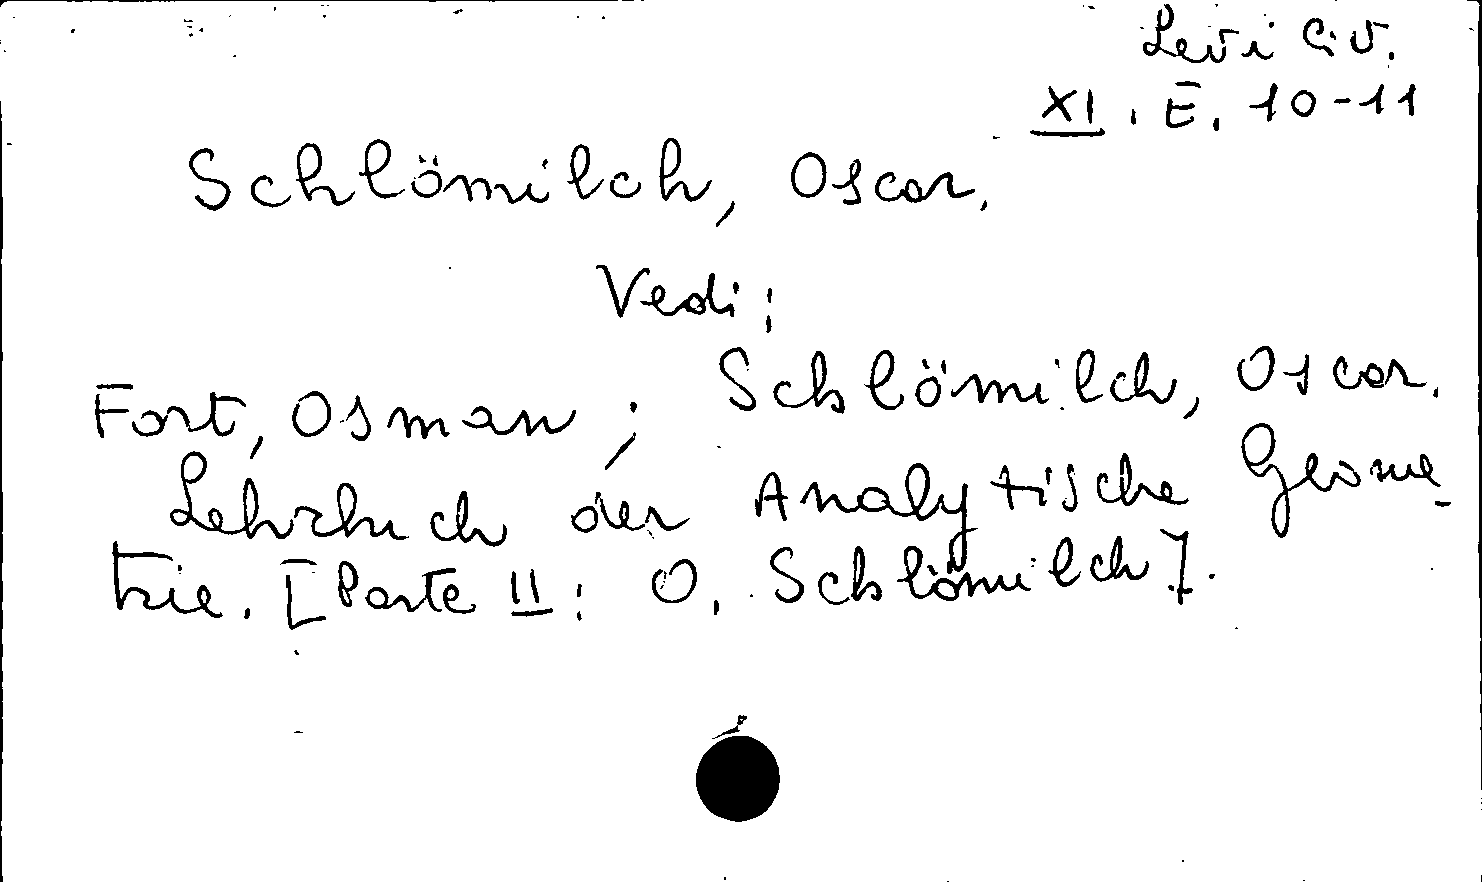 Levi Civ.
XI. E. 10-11
Schlömilch, Oscar.
Vedi:
Fort, Osman; Schlömilch, Oscar.
Lehrbuch der Analytische Geome-
trie. [Parte II: O. Schlömilch].